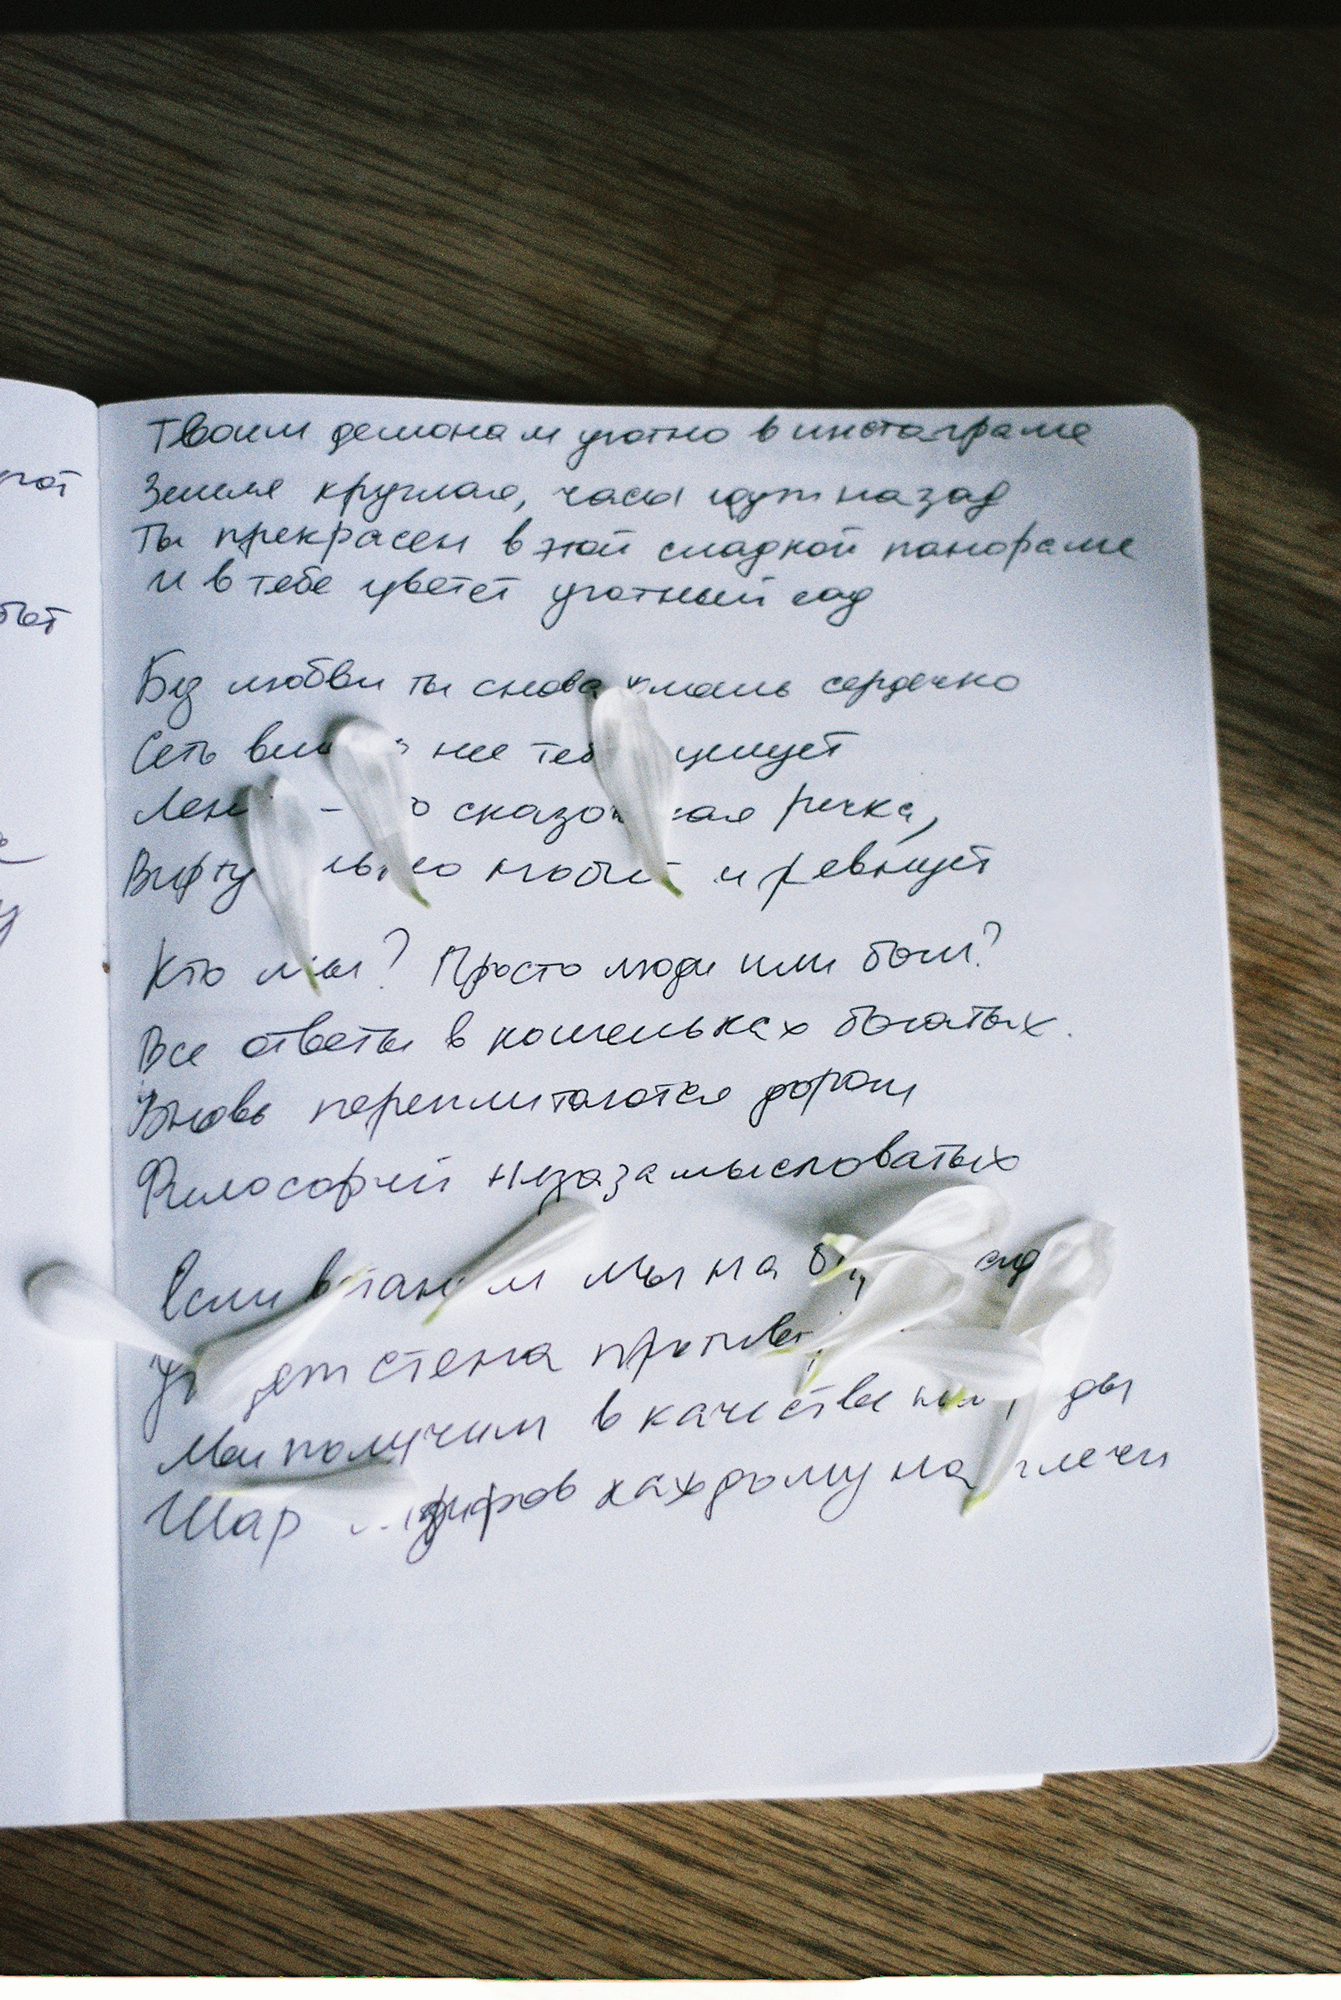 гот
бот
у
Твоим демонам уютно в инстаграме
Земля круглая, часы идут назад
Ты прекрасен в этой сладкой панораме
И в тебе цветёт уютный сад
Без любви ты снова сердечко
Сеть не
сказо кая речка,
и ревнует
Кто мы? Просто люди или боги?
Все ответы в кошельках богатых.
Вновь переплетаются дороги
Философий незамысловатых
Если мы на
стена против
Мы получим в качестве
Шар каждому на плечи